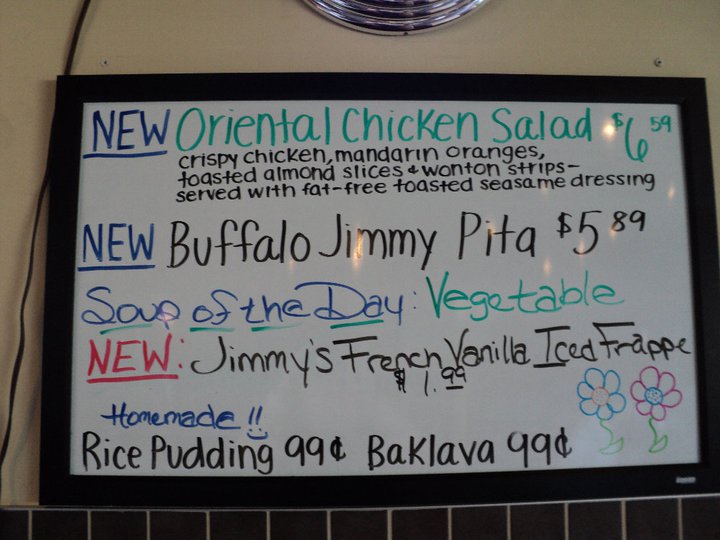 NEW Oriental Chicken Salad $6 59
crispy chicken, mandarin oranges,
toasted almond slices & wonton strips-
served with fat-free toasted seasame dressing
NEW Buffalo Jimmy Pita $5 89
Soup of the Day: Vegetable
NEW: Jimmy's French Vanilla Iced Frappe
$1.99
Homemade!!
Rice Pudding 99¢ Baklava 99¢